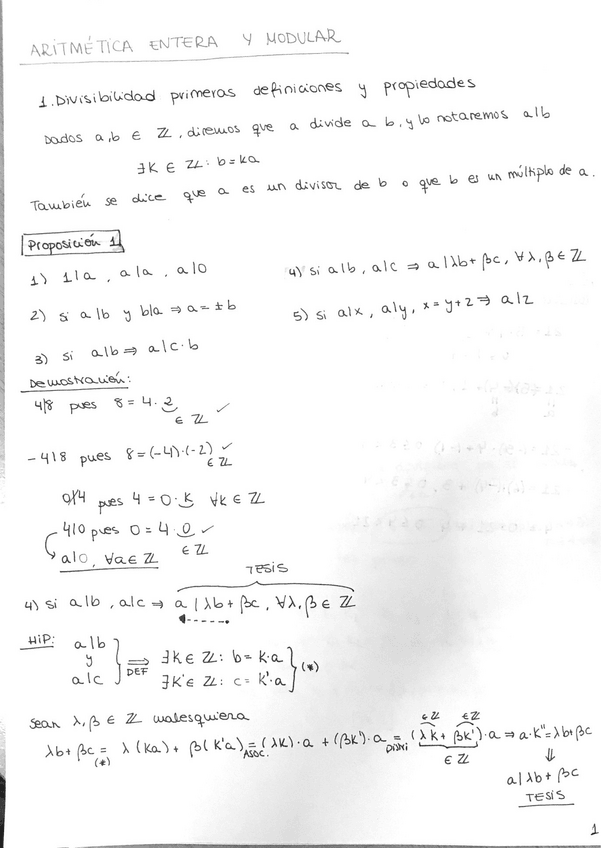 ARITMÉTICA ENTERA Y MODULAR
1. Divisibilidad primeras definiciones y propiedades
Dados a,b ∈ ℤ, diremos que a divide a b, y lo notaremos a|b
∃K ∈ ℤ: b = ka
También se dice que a es un divisor de b o que b es un múltiplo de a.
Proposición 1
1) 1|a, a|a, a|0
2) si a|b y b|a ⇒ a = ±b
3) si a|b ⇒ a|c·b
4) si a|b, a|c ⇒ a|λb + βc, ∀λ, β ∈ ℤ
5) si a|x, a|y, x = y+z ⇒ a|z
Demostración:
4|8 pues 8 = 4·2 ✓
∈ ℤ
-4|8 pues 8 = (-4)·(-2) ✓
∈ ℤ
0∤4 pues 4 = 0·K ∀K ∈ ℤ
4|0 pues 0 = 4·0 ✓
∈ ℤ
a|0, ∀a ∈ ℤ
TESIS
4) si a|b, a|c ⇒ a|λb + βc, ∀λ, β ∈ ℤ
HIP: a|b
y
a|c
⇒
DEF
∃K ∈ ℤ: b = K·a
∃K' ∈ ℤ: c = K'·a
(*)
Sean λ, β ∈ ℤ cualesquiera
∈ ℤ ∈ ℤ
λb + βc = λ(Ka) + β(K'a) = (λK)·a + (βK')·a = (λK + βK')·a ⇒ a·K'' = λb + βc
(*) ASOC. Distri
∈ ℤ
⇓
a|λb + βc
TESIS
1